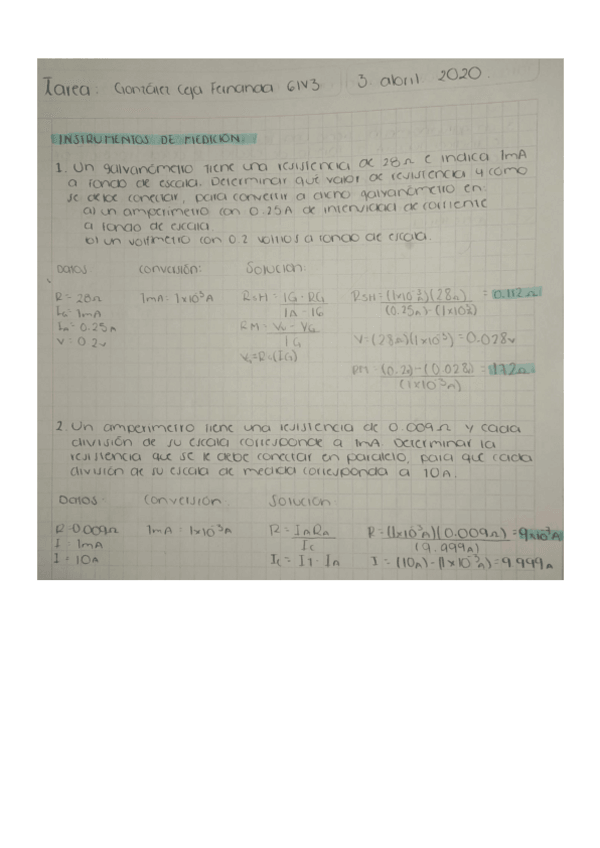 Tarea: González Ceja Fernanda 6IV3 3. abril 2020.
INSTRUMENTOS DE MEDICION.
1. Un galvanómetro tiene una resistencia de 28Ω e indica 1mA
a fondo de escala. Determinar qué valor de resistencia y como
se debe conectar, para convertir a dicho galvanómetro en:
a) un amperimetro con 0.25A de intensidad de corriente
a fondo de escala
b) un voltímetro con 0.2 voltios a fondo de escala.
Datos conversión: Solucion:
R= 28Ω 1mA= 1x10⁻³A RSH= IG·RG / IA-IG RSH=(1x10⁻³)(28Ω) / (0.25A)-(1x10⁻³) = 0.112Ω
IG= 1mA
IA= 0.25A RM= VV-VG / IG V=(28Ω)(1x10⁻³)=0.028v
V=0.2v
VG=R·(IG) RM= (0.2v)-(0.028) / (1x10⁻³A) = 172Ω
2. Un amperimetro tiene una resistencia de 0.009Ω y cada
división de su escala corresponde a 1mA Determinar la
resistencia que se le debe conectar en paralelo, para que cada
división de su escala de medida corresponda a 10A.
Datos: Conversión Solucion:
R=0.009Ω 1mA = 1x10⁻³A R= IARA / IC R=(1x10⁻³A)(0.009Ω) / (9.999A) =9x10⁻⁷Λ
I= 1mA
I= 10A IC= I1- IA I=(10A)-(1x10⁻³A)=9.999A